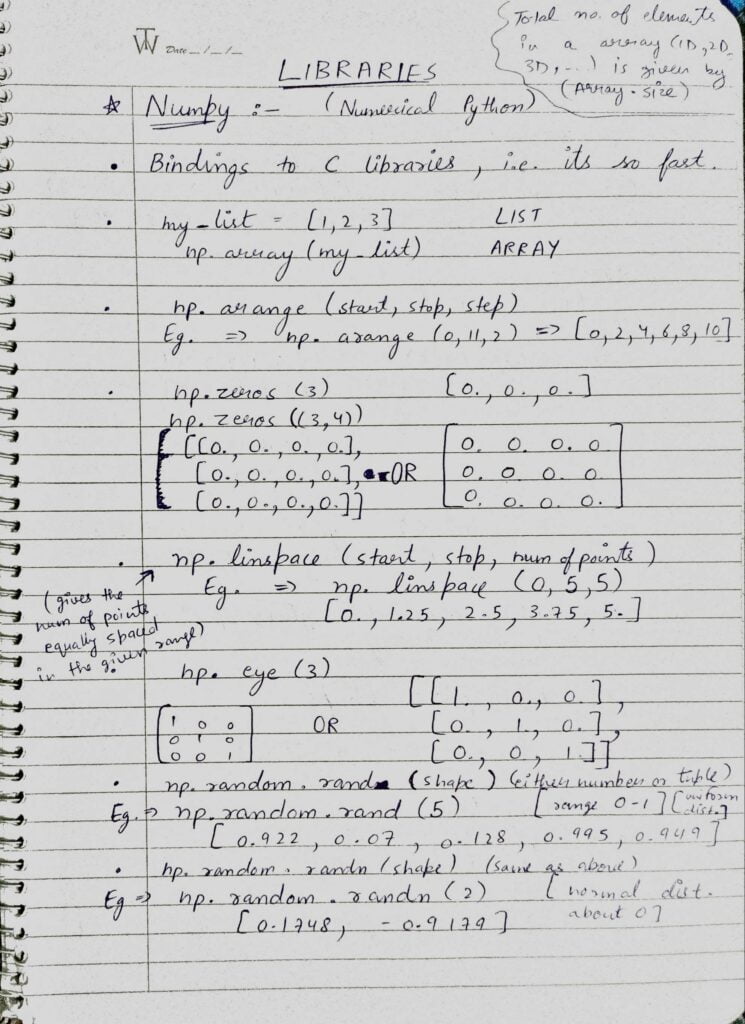 Total no. of elements
in a array (1D, 2D,
3D, ...) is given by
(Array.size)
TW Date __/__/__
LIBRARIES
☆ Numpy :- (Numerical Python)
• Bindings to C libraries, i.e. its so fast.
• my_list = [1,2,3] LIST
np.array (my_list) ARRAY
• np.arange (start, stop, step)
Eg. => np.arange (0,11,2) => [0,2,4,6,8,10]
• np.zeros (3) [0., 0., 0.]
np.zeros ((3,4))
[[0., 0., 0., 0.], 0. 0. 0. 0
[0., 0., 0., 0.], OR 0. 0. 0. 0.
[0., 0., 0., 0.]] 0. 0. 0. 0.
• np.linspace (start, stop, num of points)
Eg. => np.linspace (0,5,5)
[0., 1.25, 2.5, 3.75, 5.]
(gives the
num of points
equally spaced
in the given range)
• np.eye (3) [[1., 0., 0.],
1 0 0
0 1 0 OR [0., 1., 0.],
0 0 1 [0., 0, 1.]]
• np.random.rand (shape) (either number or tuple)
Eg. => np.random.rand (5) [range 0-1] [uniform dist.]
[0.922, 0.07, 0.128, 0.995, 0.949]
• np.random.randn (shape) (same as above)
Eg => np.random.randn (2) [normal dist.
about 0]
[0.1748, -0.9179]